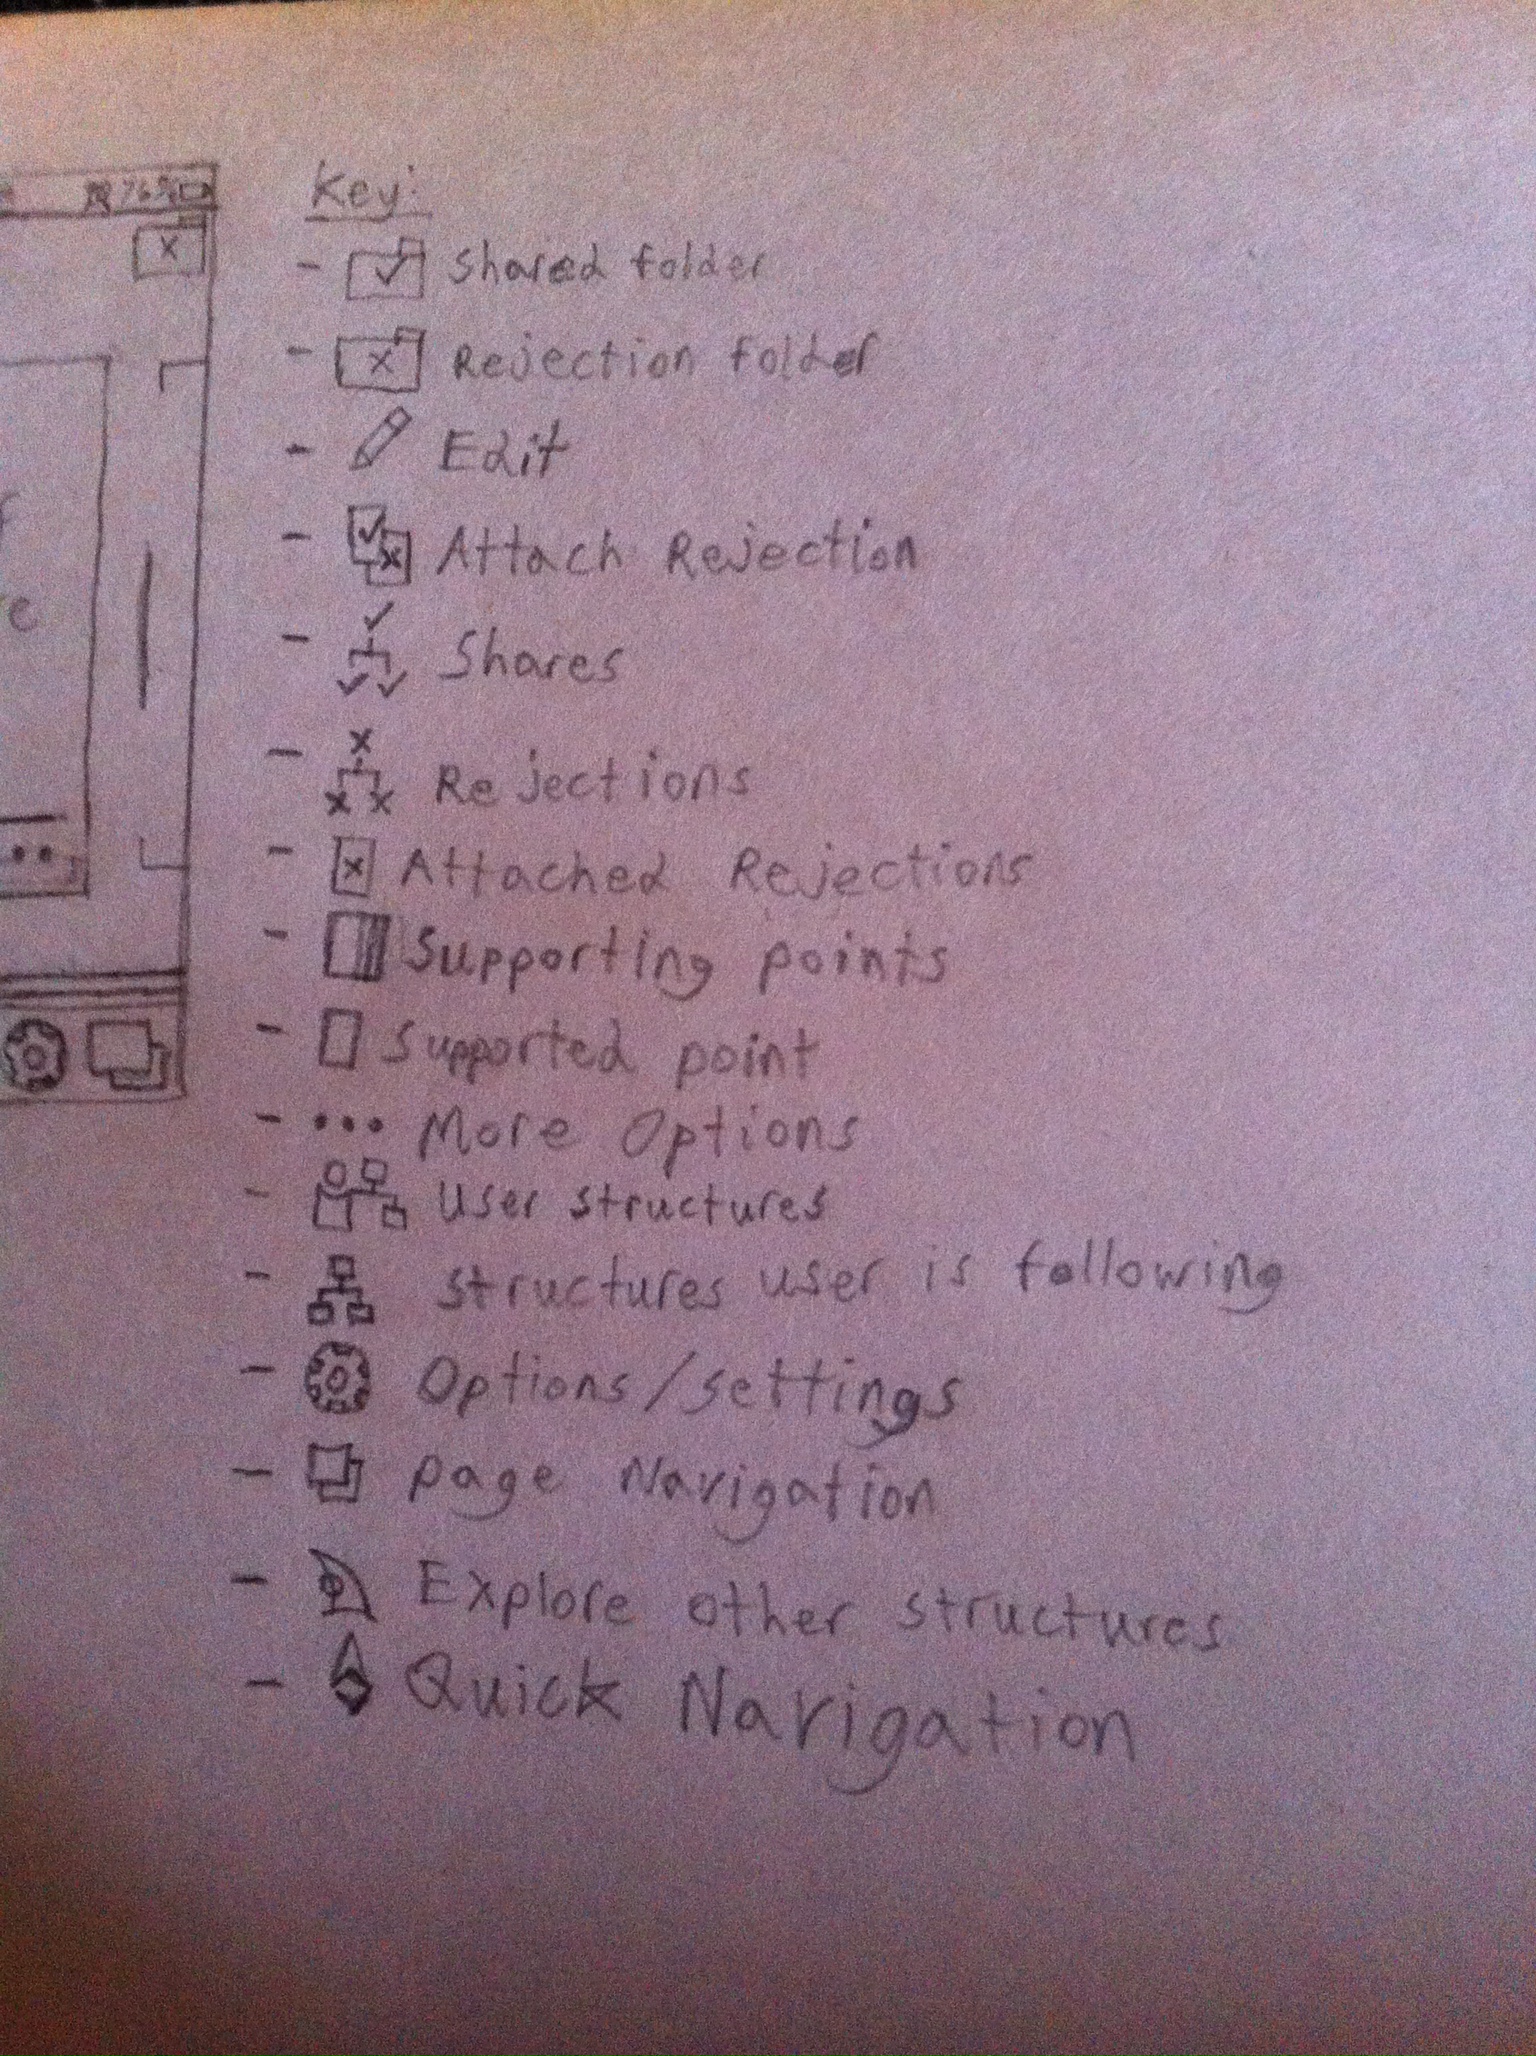 76%
Key:
- Shared folder
- Rejection folder
- Edit
- Attach Rejection
- Shares
- Rejections
- Attached Rejections
- Supporting points
- Supported point
- ... More Options
- User structures
- structures user is following
- Options/settings
- page Navigation
- Explore other structures
- Quick Navigation